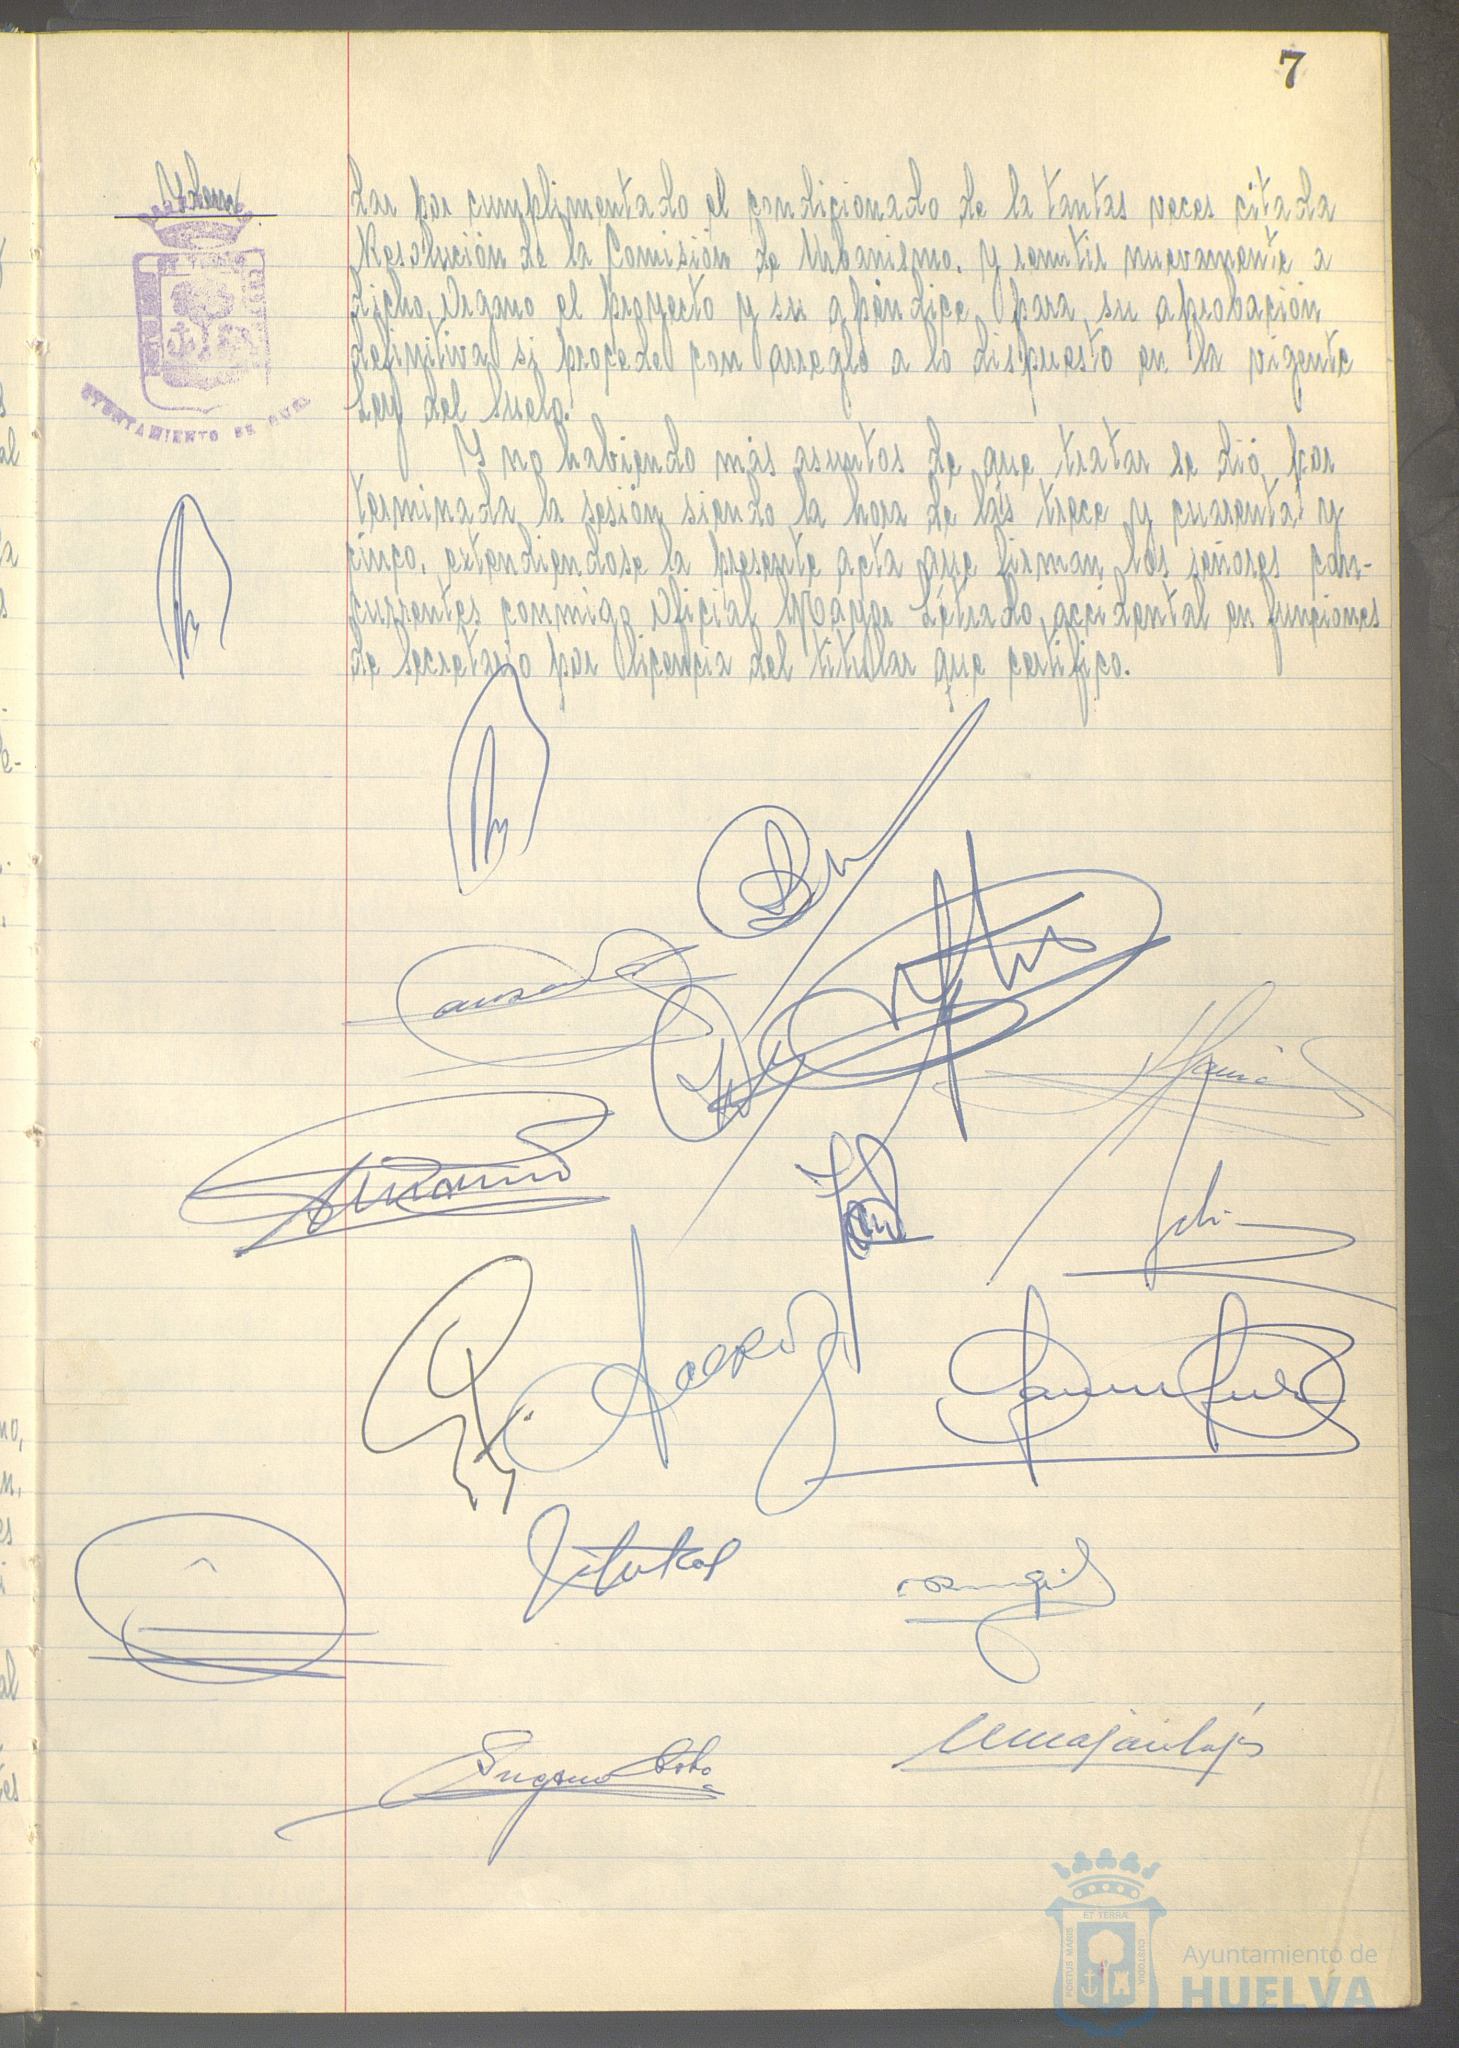 7
Ydem
dar por cumplimentado el condicionado de la tantas veces citada
Resolución de la Comisión de Urbanismo, y remitir nuevamente a
dicho Organo el proyecto y su apéndice, para su aprobación
definitiva si procede con arreglo a lo dispuesto en la vigente
Ley del Suelo.
Y no habiendo más asuntos de que tratar se dió por
terminada la sesión siendo la hora de las trece y cuarenta y
cinco, extendiendose la presente acta que firman los señores con-
currentes conmigo Oficial Mayor Letrado, accidental en funciones
de Secretario por licencia del titular que certifico.
AYUNTAMIENTO DE
ET TERRAE
PORTUS MARIS
CUSTODIA
Ayuntamiento de
HUELVA